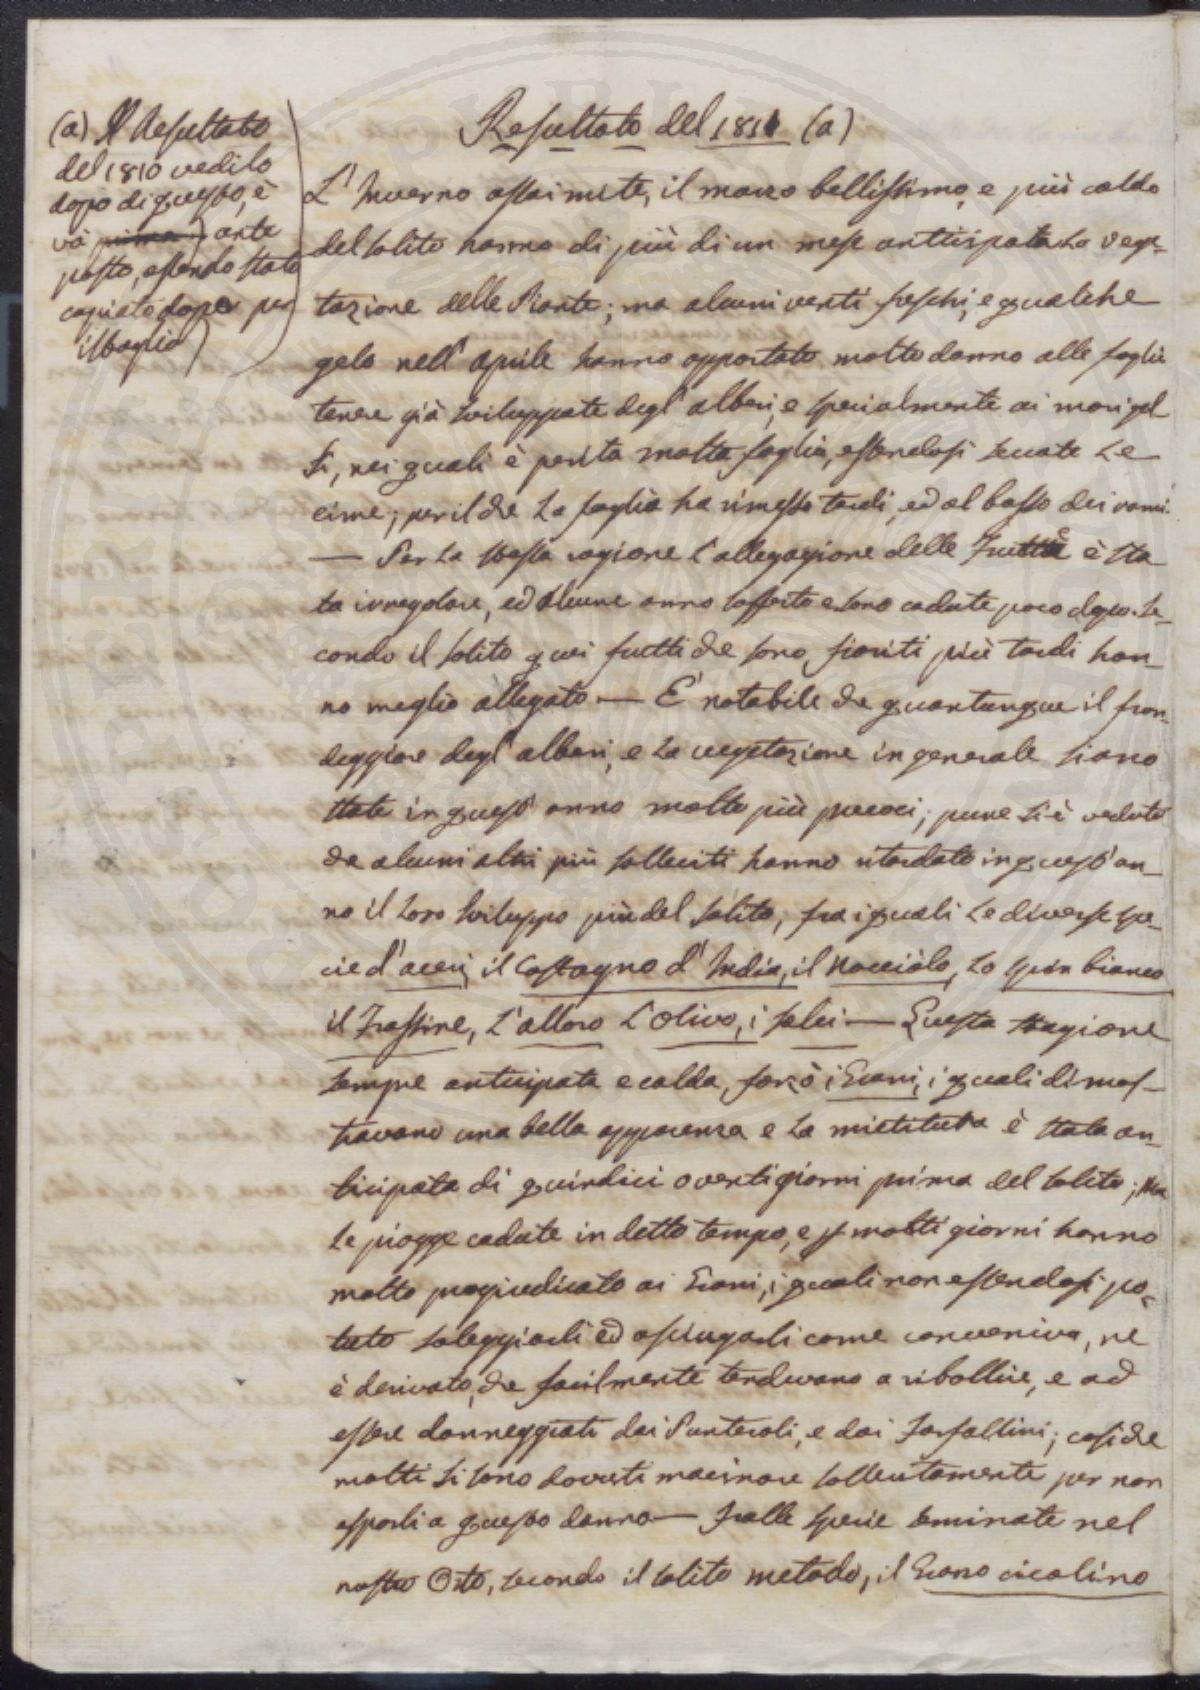 Resultato del 1811 (a)
(a) Il Resultato
del 1810 vedilo
dopo di questo, è
và prima) ante
posto, essendo stato
copiato dopo per
isbaglio)
L'Inverno assai mite, il marzo bellissimo, e più caldo
del solito hanno di più di un mese anticipata la vege-
tazione delle Piante; ma alcuni venti freschi, e qualche
gelo nell'Aprile hanno apportato molto danno alle foglie
tenere già sviluppate degl'alberi, e specialmente ai mori gel-
si, nei quali è perita molta foglia, essendosi seccate le
cime; per il che la foglia ha rimesso tardi, ed al basso dei rami.
— Per la stessa ragione l'allegagione delle Frutte è sta-
ta irregolare, ed alcune anno sofferto e sono cadute poco dopo. Se-
condo il solito quei frutti che sono fioriti più tardi han-
no meglio allegato — E' notabile che quantunque il fron-
deggiare degl'alberi, e la vegetazione in generale siano
state in quest'anno molto più precoci; pure si è veduto
che alcuni altri più solleciti hanno ritardato in quest'an-
no il loro sviluppo più del solito, fra i quali le diverse spe-
cie d'aceri, il Castagno d'India, il Nocciòlo, lo spin bianco
il Frassine, L'alloro L'Olivo, i salci — Questa stagione
sempre anticipata e calda, forzò i Grani, i quali dimos-
travano una bella apparenza e la mietitura è stata an-
ticipata di quindici o venti giorni prima del solito; Ma
le piogge cadute in detto tempo, e p molti giorni hanno
molto pregiudicato ai Grani, i quali non essendosi po-
tuto soleggiarli ed asciugarli come conveniva, ne
è derivato, che facilmente tendevano a ribollire, e ad
essere danneggiati dai Punteroli, e dai Farfallini; cosiche
molti si sono dovuti macinare sollecitamente per non
esporli a questo danno — Fralle specie seminate nel
nostro Orto, secondo il solito metodo, il Grano cicalino